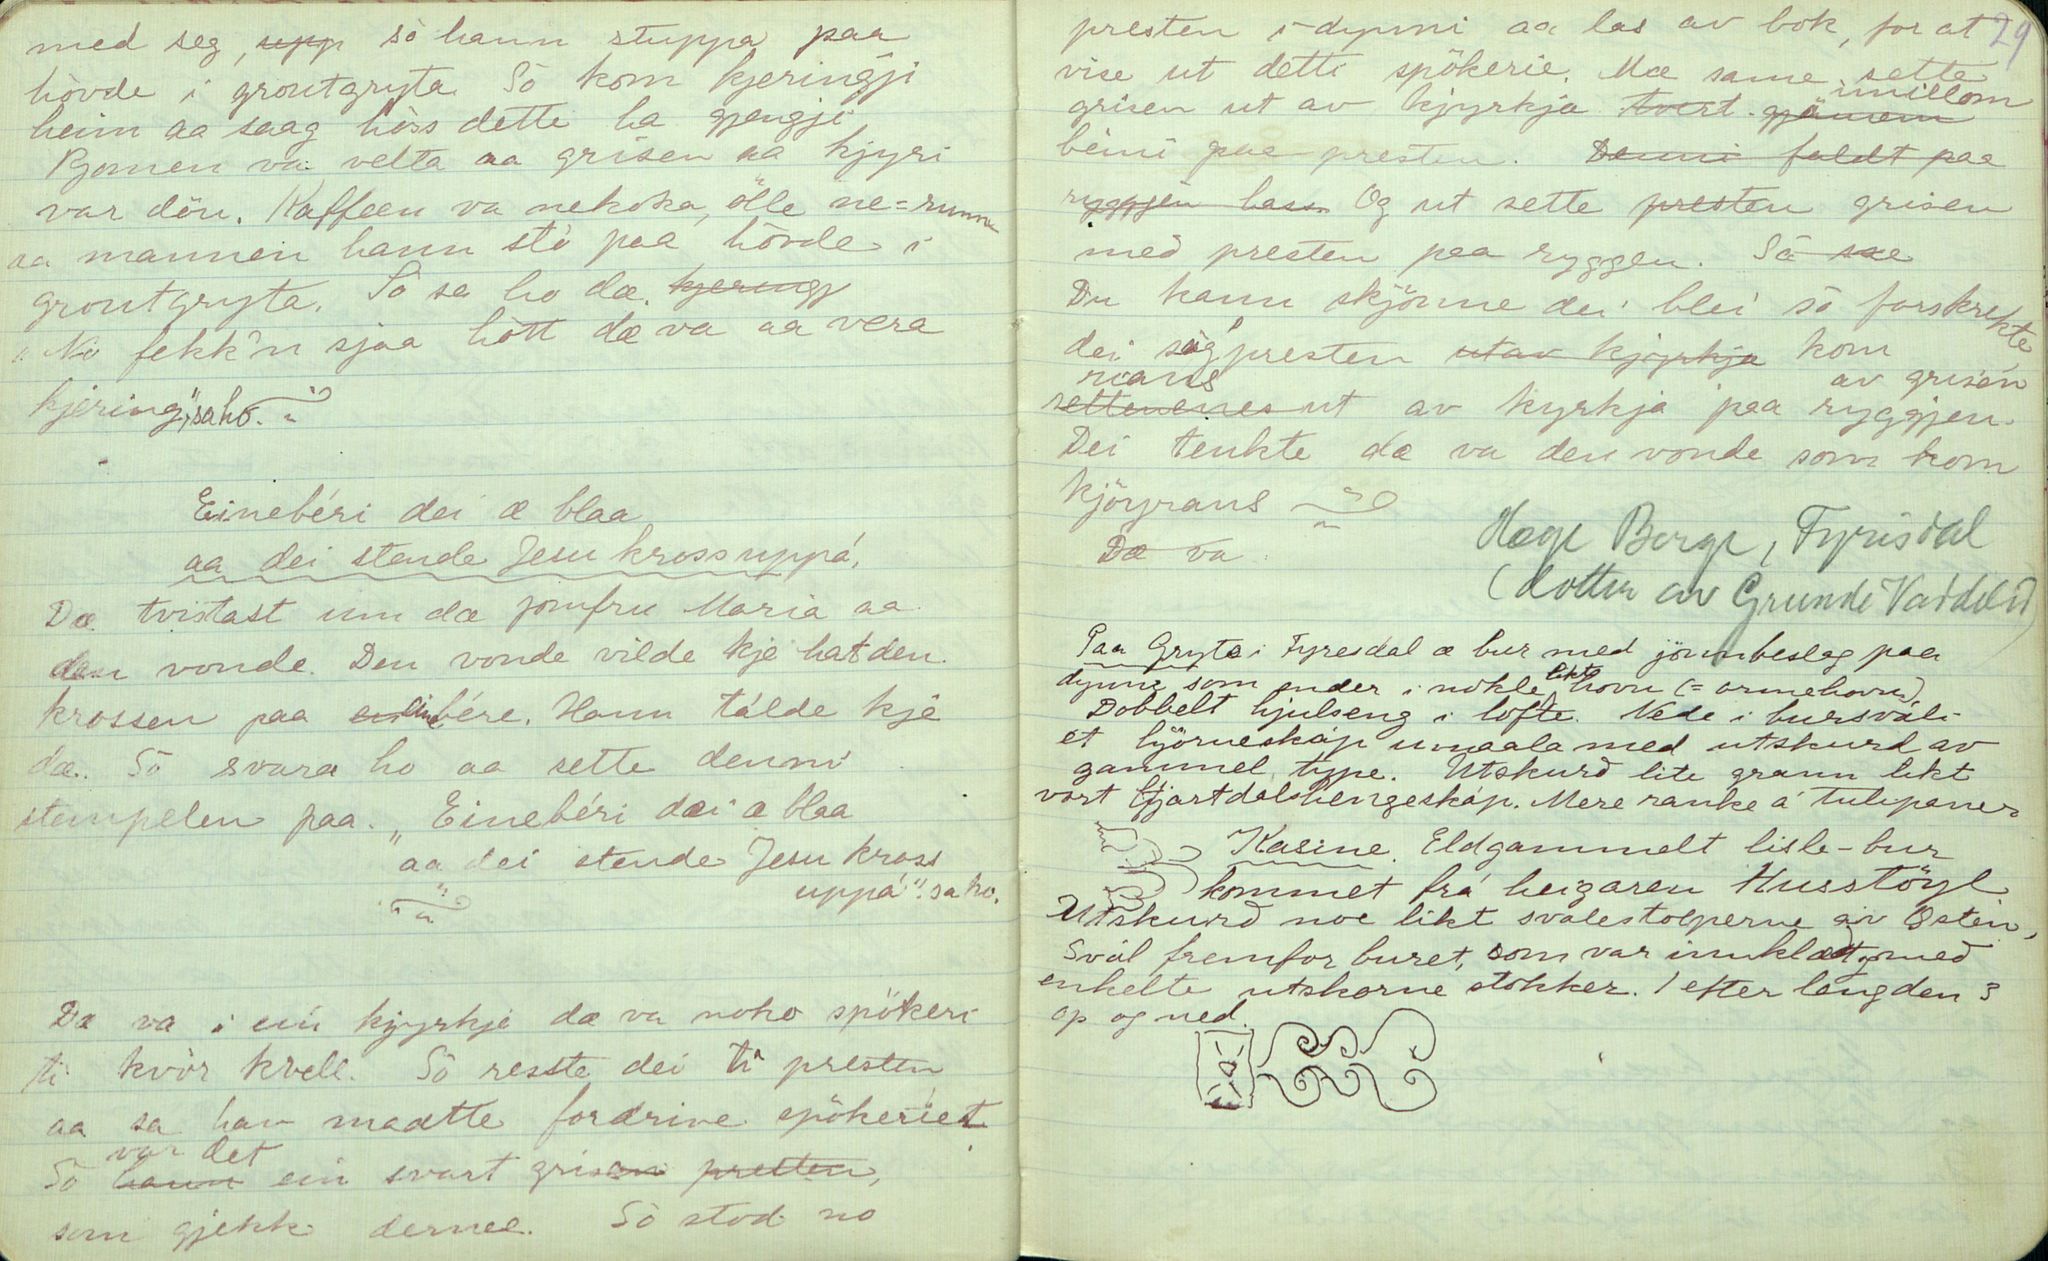 med seg, upp sò hann stuppa paa
hòvde i grautgryta. Sò kom kjeringji
heim aa saag hòss dette ha gjengji
Rjomen va velta aa grisen aa kjyri
var döu. Kaffeen va nekoka, ölle ne=runne
aa mannen hann stò paa hòvde i
grautgryta. Sò sa ho dæ. kjeringj
"No fekk'n sjaa hòtt dæ va aa vera
kjering", sa ho.
Einebéri dei æ blaa
aa dei stende Jesu kross uppá.
Dæ tvistast um dæ jomfru Maria aa
den vonde. Den vonde vilde kje hat den
krossen paa einebére. Hann tålde kje
dæ. Sò svara ho aa sette denni
stempelen paa. "Einebéri dei æ blaa
aa dei stende Jesu kross
uppá" sa ho.
Dæ va i ein kjyrkje dæ va noko spökeri
ti kvòr kvell. Sò resste dei ti presten
aa sa han maatte fordrive spökeriet
var det
Sò hann ein svart grisen presten,
som gjekk dernee. Sò stod no
29
presten i dynni aa las av bok, for at
vise ut detti spökerie. Mæ same sette
grisen ut av kjyrkja tvert gjönem millom
beini paa presten. Denni faldt paa
ryggjen hass Og ut sette presten grisen
med presten paa ryggen. Så sae
Du kann skjönne dei blei sò forskrekte
dei såg presten utav kjyrkja kom
rians av grisen
settenenes ut av kyrkja paa ryggjen.
Dei tenkte dæ va den vonde som kom
kjöyrans
Dæ va
Hæge Berge, Fyrisdal
(dotter av Grunde Vaddeli)
Paa Gryte i Fyresdal æ bur med jönnbeslag paa
dynne som ender i nokle likt hovu (= ormehovu)
Dobbelt hjulseng i lofte. Nede i bursváli
et hjörneskáp umaala med utskurd av
gammel type. Utskurd lite grann likt
vart Hjartdalshengeskáp. Mere ranke á tulipaner
Kasine. Eldgammelt lisle-bur
kommet frá heigaren Husstöyl
Utskurd noe likt svalestolperne av Östen,
Svál fremfor buret, som var innklædt med
enkelte utskorne stokker. I efter lengden 3
op og ned.